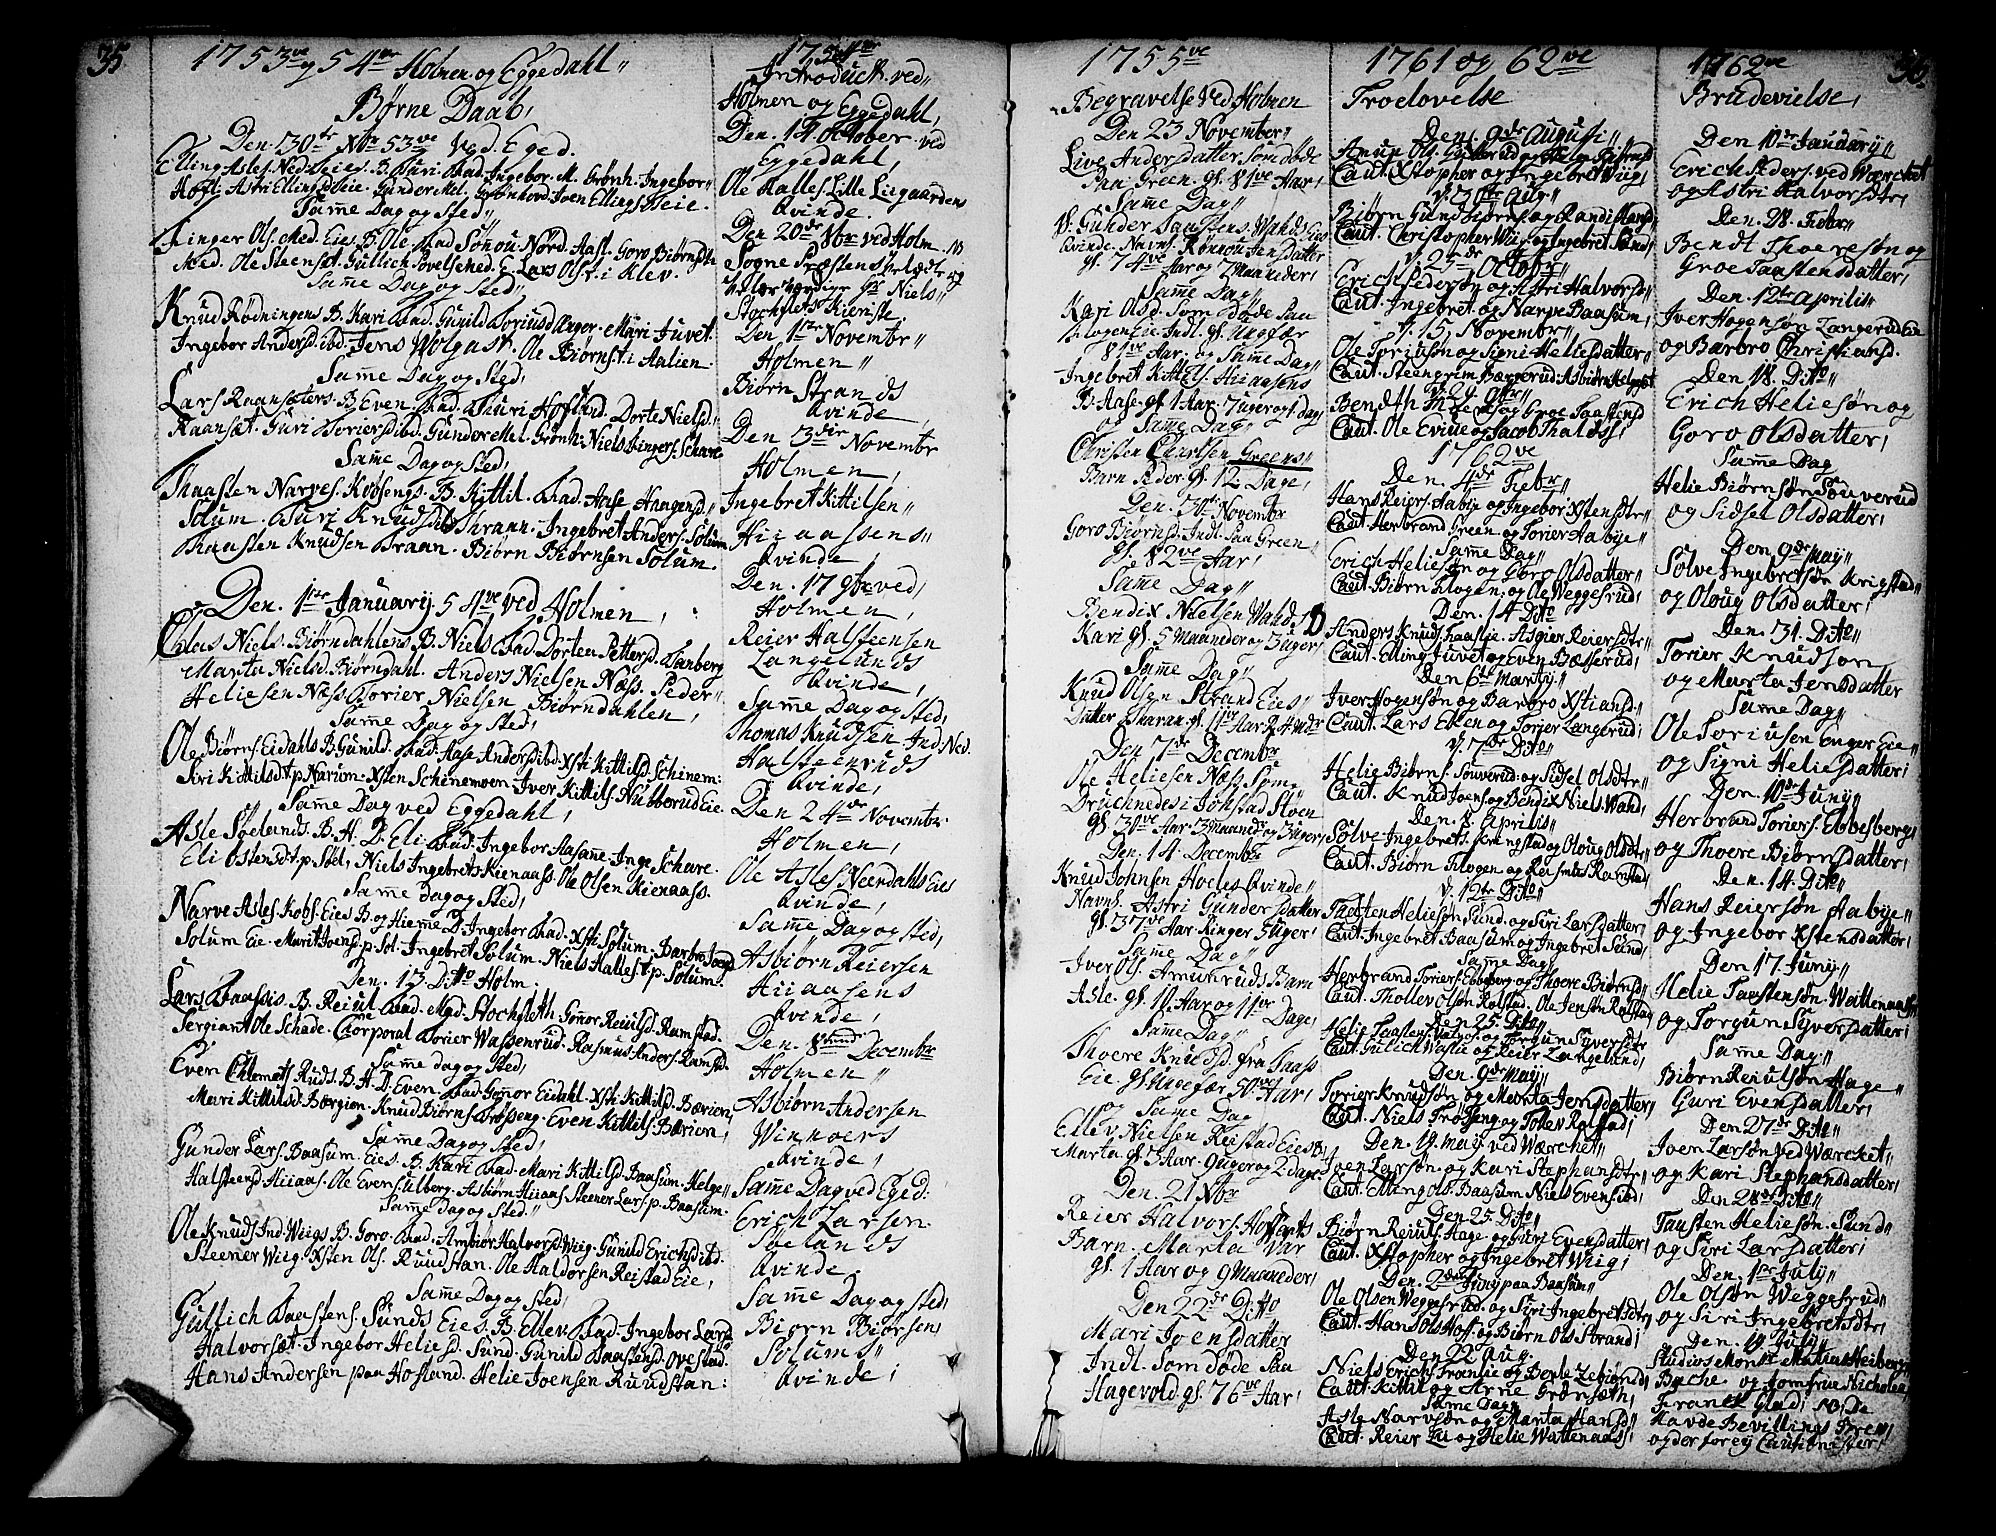 35
1753ve og 54er Holmen og Eggedahl
Børne Daab,
Den 30te Xbr 53ve Ved Eged.
Elling Asles. Ned. Eies. B. Turi. Ingebor. M. Grønh. Ingebor
Hofl. Astri Ellingsd. Eie. Gunder Mel. Grønhovd. Joen Ellings. Eie.
Samme Dag og Sted
Finger Ols. Med. Eies. B. Ole. Nord. Aasl. Goro Biørnsdtr
Med. Ole Steensæt. Gullich. Lars Olss. i Klev.
Samme Dag og Sted
Knud Rødningens B. Kari. Gunild Toriusd. Enger. Mari Juvet.
Ingebor Andersd. ibd. Jens Wolgast. Ole Biørnst. i Aalien.
Samme Dag og Sted,
Lars Raansæters. B. Even. Turi Hofland. Dorte Nielsd.
Raansæt. Guri Toriersd. ibd. Gunder Mel. Grønh. Niels Finger. Schare
Samme Dag og Sted,
Thaasten Narves. Kobsengs. B. Kittil. Aase Haagensd.
Solum. Turi Knudsd. Thrann. Ingebret Anders. Solum
Thaasten Knudsen Traan. Biørn Biørnsen Solum.
Den. 1ste January 54ve ved Holmen,
Claas Niels. Biørndahlens B. Niels. Dorten Pettersd. Tanberg
Marta Nielsd. Biørndahl. Anders Nielsen Næss. Peder
Heliesen Næss. Torier Nielsen Biørndahlen,
Samme Dag og Sted,
Ole Biørns. Eidahls B. Gunild. Aase Andersd. ibd. Xsti Kittilsd. Schinem:
Siri Kittilsdt. p. Narum. Xsten Schinemoen. Iver Kittils. Nubberud Eie
Samme Dag ved Eggedahl,
Asle Søelands. B. H. D. Eli. Ingebor Aasanne. Inge Schare.
Eli Ostensdt. p. Støl, Niels Ingebrets. Kienaass. Ole Olsen Kienaass.
Samme Dag og Sted,
Narve Asles. Kobs. Eies B. og Hieme D. Ingebor. Xsti Solum. Barbro Joensd
Solum Eie. Marit Joensd. p. Sol. Ingebret Solum. Niels Halles. t. p. Solum.
Den. 13 Ditto Holm:
Lars Taassis. B. Reiul. Mad. Stochfleth. Gonor Reiulsd. Ramstad.
Sergiant Ole Schade. Chorporal Torier Wassenrud. Rasmus Anders. Ramstd.
Samme dag og Sted,
Even Chlemets Ruds. B. H. D. Even. Gonor Eidahl. Xsti Kittilsd. Bærien,
Mari Kittilsd. Børgien. Knud Biørns. Frøseng. Even Kittils. Bærien,
Samme Dag og Sted,
Gunder Lars. Baasum. Eies. B. Kari. Mari Kittilsd. Baasum. Helge
Halsteensd. Hiiaas. Ole Evens. Ulberg. Asbiørn Hiiaas. Steener Lars. p. Baasum.
Samme Dag og Sted
Ole Knuds. Ind. Wiigs B. Goro. Ambiør Halvorsd. Wiig. Gunild Erichsd. ibd.
Steener Wiig. Xsten Ols. Ruudstan. Ole Haldorsen Reistad Eie,
Samme Dag og Sted,
Gullich Taastens. Sunds Eies. B. Ellev. Ingebor Larsd
Halvorsæt. Ingebor Heliesd. Sund. Gunild Taastensd. Ovestad.
Hans Andersen paa Hofland. Helie Joensen Ruudstan:
1754er
Introduct. ved
Holmen og Eggedahl,
Den. 14 October ved
Eggedahl,
Ole Halles. Lille Liegaardens
Qvinde.
Den 20de 8br ved Holm.
Sogne Præstens
Hr Niels
Stochfleths Kieriste.
Den 1ste Novembr
Holmen
Biørn Strands
Qvinde,
Den 3die Novembr
Holmen,
Ingebret Kittilsen
Hiiaasens
Qvinde
Den. 17 9br ved,
Holmen,
Reier Halsteensen
Langelunds
Qvinde,
Samme Dag og sted,
Thomas Knudsen Ind. Ned.
Halsteenruds
Qvinde,
Den 24de November
Holmen,
Ole Asles Neerdahls Eies
Qvinde,
Samme Dag og sted,
Asbiørn Reiersen
Hiiaasens
Qvinde,
Den. 8tende Decembr
Holmen
Asbiørn Andersen
Winnoers
Qvinde,
Samme Dag ved Eged:
Erich Larsen
Søelands
Qvinde.
Samme Dag og sted,
Biørn Biørsens
Solums
Qvinde,
1755ve
Begravelse Ved Holmen
Den 23 November
Live Andersdatter som døde
Paa Green. gl. 81ve Aar,
Samme Dag
Gunder Taastens. Wahds Eies
Qvinde. Navnl. Rønnou Jensdatter
gl. 74ve Aar og 7 Maaneder,
Samme Dag
Kari Olsd. Som døde Paa
Flogen Eie Indl. gl. Ungefær
81ve Aar. og Samme Dag
Ingebret Kittels. Hiiaasens
B. Aase. gl. 1 Aar. 7 uger og 1 dag
og Samme Dag
Christen Charlsen Greens
Barn Peder. gl. 12 Dage,
Den. 30te Novembr
Goro Biørnsd. Indl. Paa Green
gl. 82ve Aar,
Samme Dag
Bendix Nielsen Wahds D
Kari gl. 5 Maaneder og 3 uger
Samme Dag
Knud Olsen Strand Eies
Datter Maran. gl. 11ve Aar & 4 Mdr
Den 7de Decembr
Ole Heliesen Næss. Som
Druchnedes i Johstad Støen
gl. 30ve Aar. 3 Maaneder og 3 uger,
Den. 14 Decembr
Knud Johnsen Hoeles Qvinde
Navnl. Astri Gundersdatter
gl. 37ve Aar Ringer 5 Uger,
Samme Dag
Iver Ols. Amunruds Barn
Asle. gl. 10 Aar og 11ve Dage,
Samme Dag
Thoere Knudsd. fra Faass
Eie gl. Ungefær 50ve Aar,
og Samme Dag
Ellev Nielsen Reistad Eies B,
Marta gl. 3 Aar. 9 uger og 2 dage.
Den. 21 Xbr
Reier Halvors. Hofsæts
Barn. Marta Var
gl. 1 Aar og 9 Maaneder,
Den 22de Ditto
Mari Joensdatter
Indl. Som døde Paa
Hagevold. gl. 76ve Aar,
1761 og 62ve
Trolovelse
Den 9de Augusti
Anun Ols. Gulsrud og Helge Biørnsd
Caut. Xstopher og Ingebret Wiig,
d. 30te Aug
Biørn Gundbiørns. og Randi Hansd
Caut. Christopher Wiig og Ingebret Sund,
d. 25de Octobr
Erich Pedersøn og Astri Halvorsd
Caut. Ingebret og Narve Baasum,
d. 15 Novembr
Ole Toriusøn og Signi Heliesdatter
Caut. Steengrim Bæggerud. Asbiørn Helgeset
d. 29 9br
Bendth Thoeres. og Groe Taastensd
Caut. Ole Evine og Jacob Thaldss,
1762ve
Den. 4de Febr
Hans Reiers. Aabye og Ingebor Xstensdtr
Caut. Herbrand Green og Torier Aabye
Samme Dag
Erich Heliesøn og Goro Olsdatter
Caut. Biørn Flogen. og Ole Weggesrud,
Den. 14 Dito
Anders Knuds. haaslie. Asgier Reiersdtr
Caut. Elling Juvet og Even Bæsserud,
Den 6te Marty
Iver Hogensøn og Barbro Xstiansd.
Caut. Lars Eken og Torjer Langerud,
d. 7de Dito
Helie Biørns. Souverud. og Sidsel Olsdtr
Caut. Knud Joens. og Bendix Niels. Wahd,
Den. 8 Aprilis
Sølve Ingebrets. Kringstad og Oloug Olsdtr
Caut. Biørn Flogen og Rasmus Ramstad,
d. 12te Dito
Taasten Heliesøn Sund. og Siri Larsdatter,
Caut. Ingebret Baasum og Ingebret Sund,
Samme Dag,
Herbrand Toriers. Ebbesberg og Thoere Biørnsd
Caut. Thollev Olsøn Rolstad. Ole Jensøn Rolstad
Den 25. Dito
Helie Taastens. Watnaas og Torgun Syversdtr
Caut. Gulich Waslie og Reier Langelund,
Den. 9de May
Torier Knudsøn og Marta Jensdatter,
Caut. Niels Frøseng og Tollev Rolstad,
Den. 19 May ved Wærchet
Joen Larsøn. og Kari Stephansdtr
Caut. Elling Ols. Baasum Niels Evens. ibd,
Den 25. Dito
Biørn Reiuls. Hage. og Guri Evensdatter,
Caut. Xstopher og Ingebret Wiig,
Den. 2den Juny paa Baasum
Ole Olsen Weggesrud. og Siri Ingebretsdtr,
Caut. Hans Ols Hoff. og Biørn Ols Strand,
Den 22 Aug.
Niels Erichs. Franslie og Dorte Zebionsd
Caut. Kittil og Arne Grønseth,
Samme Dag
Asle Narvsøn og Marta Hansd
Caut. Reier Lu og Helie Wattenaass,
1762ve
36
Brudevielse,
Den 10de January
Erich Peders. ved Wærchet
og Astri Halvorsdtr,
Den. 28. Febr
Bendt Thoeresøn og
Groe Taastensdatter,
Den. 12te Aprilis
Iver Hogensøn Langerud Eie
og Barbro Christiansd.
Den. 18. Dito
Erich Heliesøn og
Goro Olsdatter,
Samme Dag
Helie Biørnsøn Souverud
og Sidsel Olsdatter,
Den 9de May
Sølve Ingebretsøn Krigstad
og Oloug Olsdatter,
Den. 31. Dito
Torier Knudsøn
og Marta Jensdatter
Samme Dag
Ole Toriusen Enger Eie
og Signi Heliesdatter,
Den. 10de Juny
Herbrand Toriers. Ebbesberg,
og Thoere Biørnsdatter,
Den. 14. Dito
Hans Reiersøn Aabye
og Ingebor Xstensdatter,
Den 17 Juny
Helie Taastensøn Wattenaass
og Torgun Syversdatter,
Samme Dag
Biørn Reiulsøn Hage
Guri Evensdatter,
Den 27de Dito
Joen Larsøn Ved Wærcket
og Kari Stephansdatter,
Den 28de Dito
Taasten Heliesøn. Sund
og Siri Larsdatter,
Den. 1ste July
Ole Olsøn Weggesrud
og Siri Ingebretsdtr,
Den. 19 July
Studios Monsr Matias Heiberg
Bache og Jomfrue Nicholea
Franck Glad,
Havde Bevillings Brev
og derfor ey Cautionister,